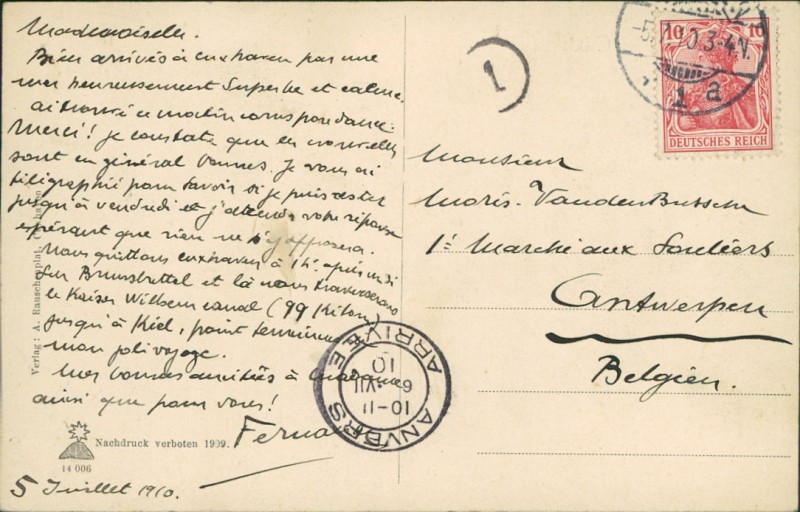 Mademoiselle.
Bien arrivés à Cuxhaven par une
mer heureusement superbe et calme.
ai trouvé ce matin correspondance.
Merci! je constate que les nouvelles
sont en général bonnes. Je vous ai
télégraphié pour savoir si je puis rester
jusqu'à vendredi et j'attends votre réponse
espérant que rien ne s'y opposera.
Nous quittons Cuxhaven à 1h. après midi
sur Brunsbuttel et là nous traverserons
le Kaiser Wilhem canal (99 Kilom)
jusqu'à Kiel, point terminus
mon joli voyage.
Mes bonnes amitiés à
ainsi que pour vous!
Fernand
5 Juillet 1910.
Verlag: A. Rauschenplat,
Nachdruck verboten 1909.
14 006
1
10 10
DEUTSCHES REICH
3-4.V.
1 a
Monsieur
Moris-VandenBussche
1: Marché aux Souliers
Antwerpen
Belgien.
ANVERS
10-11
6 VII
10
ARRIVÉE